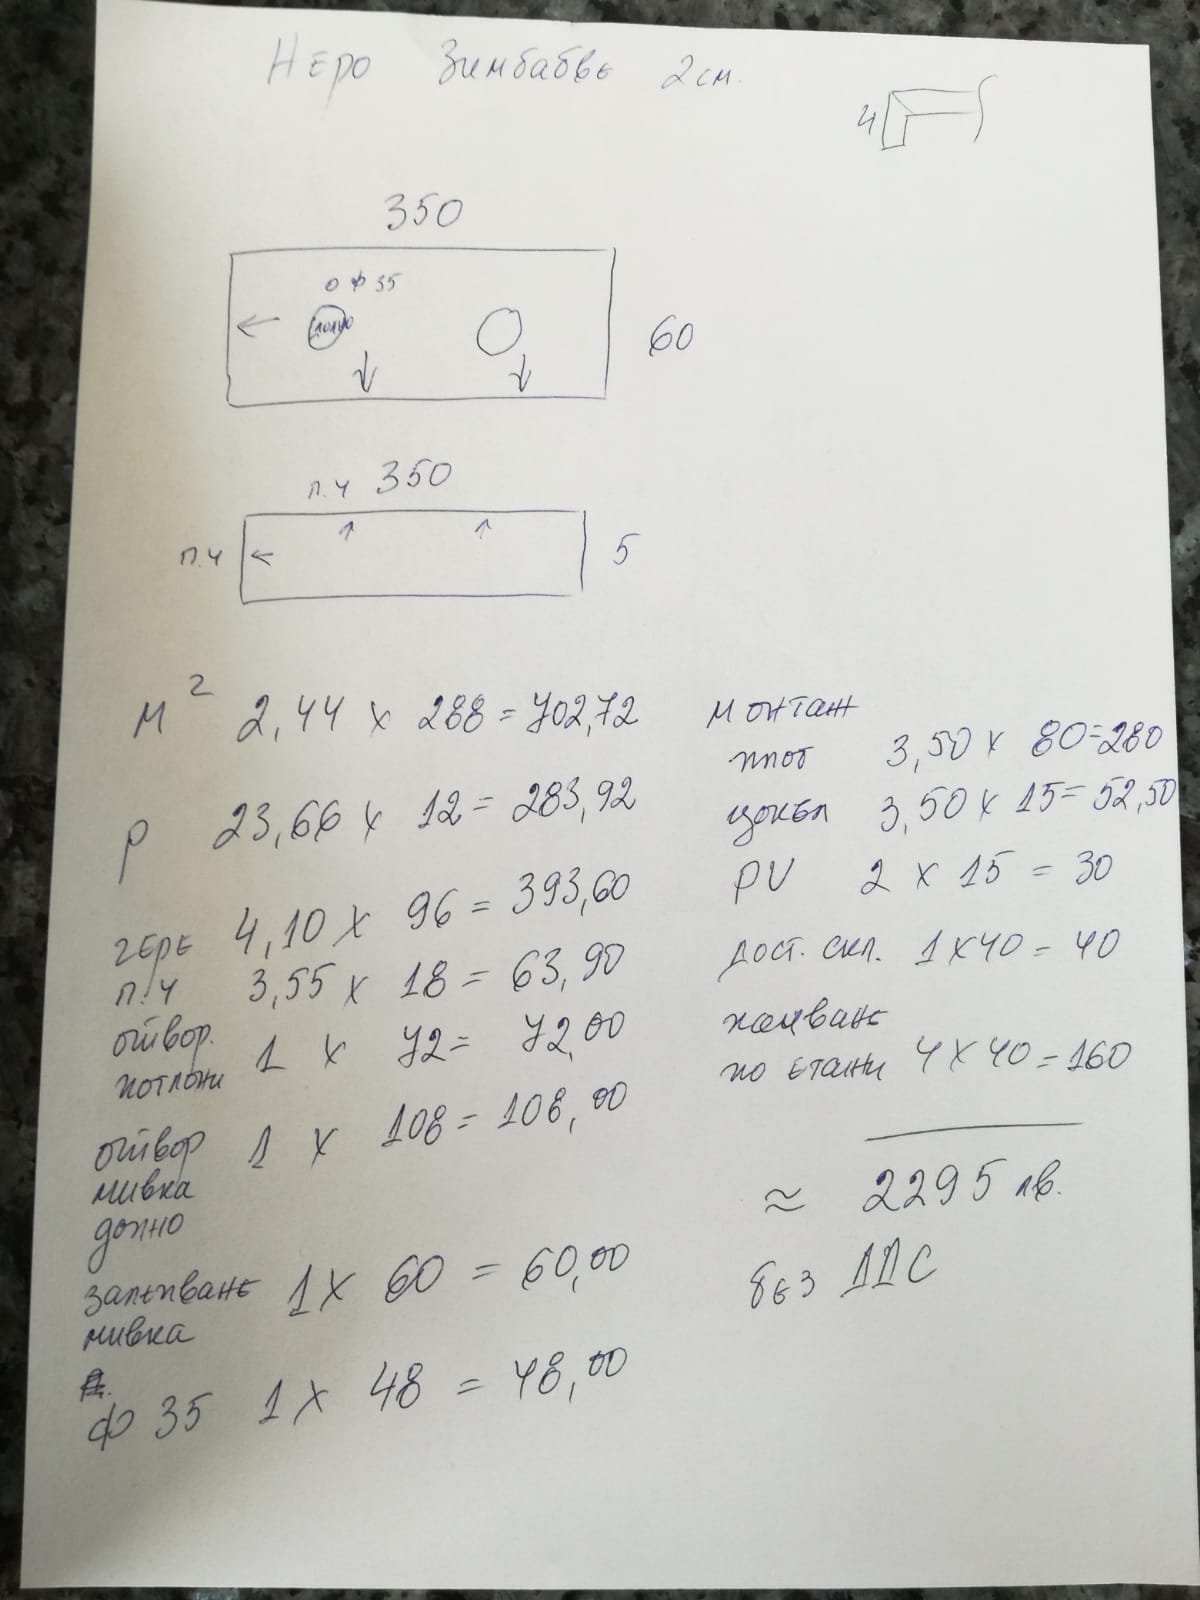 Неро Зимбабве 2см.
4
350
О ф 35
долно
60
п.ч 350
п.ч
5
м² 2,44 х 288 = 702,72
р 23,66 х 12 = 283,92
гере 4,10 х 96 = 393,60
п.ч 3,55 х 18 = 63,90
отвор. 1 х 72 = 72,00
котлони
отвор 1 х 108 = 108,00
мивка
долно
залепване 1 х 60 = 60,00
мивка
ф 35 1 х 48 = 48,00
монтаж
плот 3,50 х 80 = 280
цокъл 3,50 х 15 = 52,50
PU 2 х 15 = 30
дост. скл. 1 х 40 = 40
качване
по етажи 4 х 40 = 160
≈ 2295 лв.
без ДДС